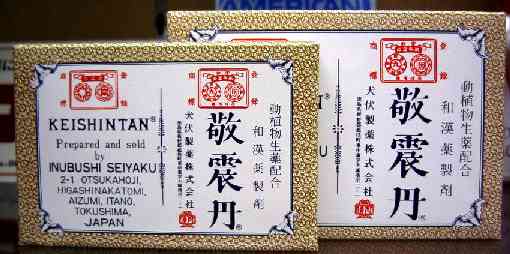 AMERICAN
登録
商標
KEISHINTAN®
Prepared and sold
by
INUBUSHI SEIYAKU
2-1 OTSUKAHOJI,
HIGASHINAKATOMI,
AIZUMI, ITANO,
TOKUSHIMA,
JAPAN
登録
商標
動植物生薬配合
和漢薬製剤
敬震丹®
犬伏製薬株式会社
登録
商標
動植物生薬配合
和漢薬製剤
敬震丹®
犬伏製薬株式会社